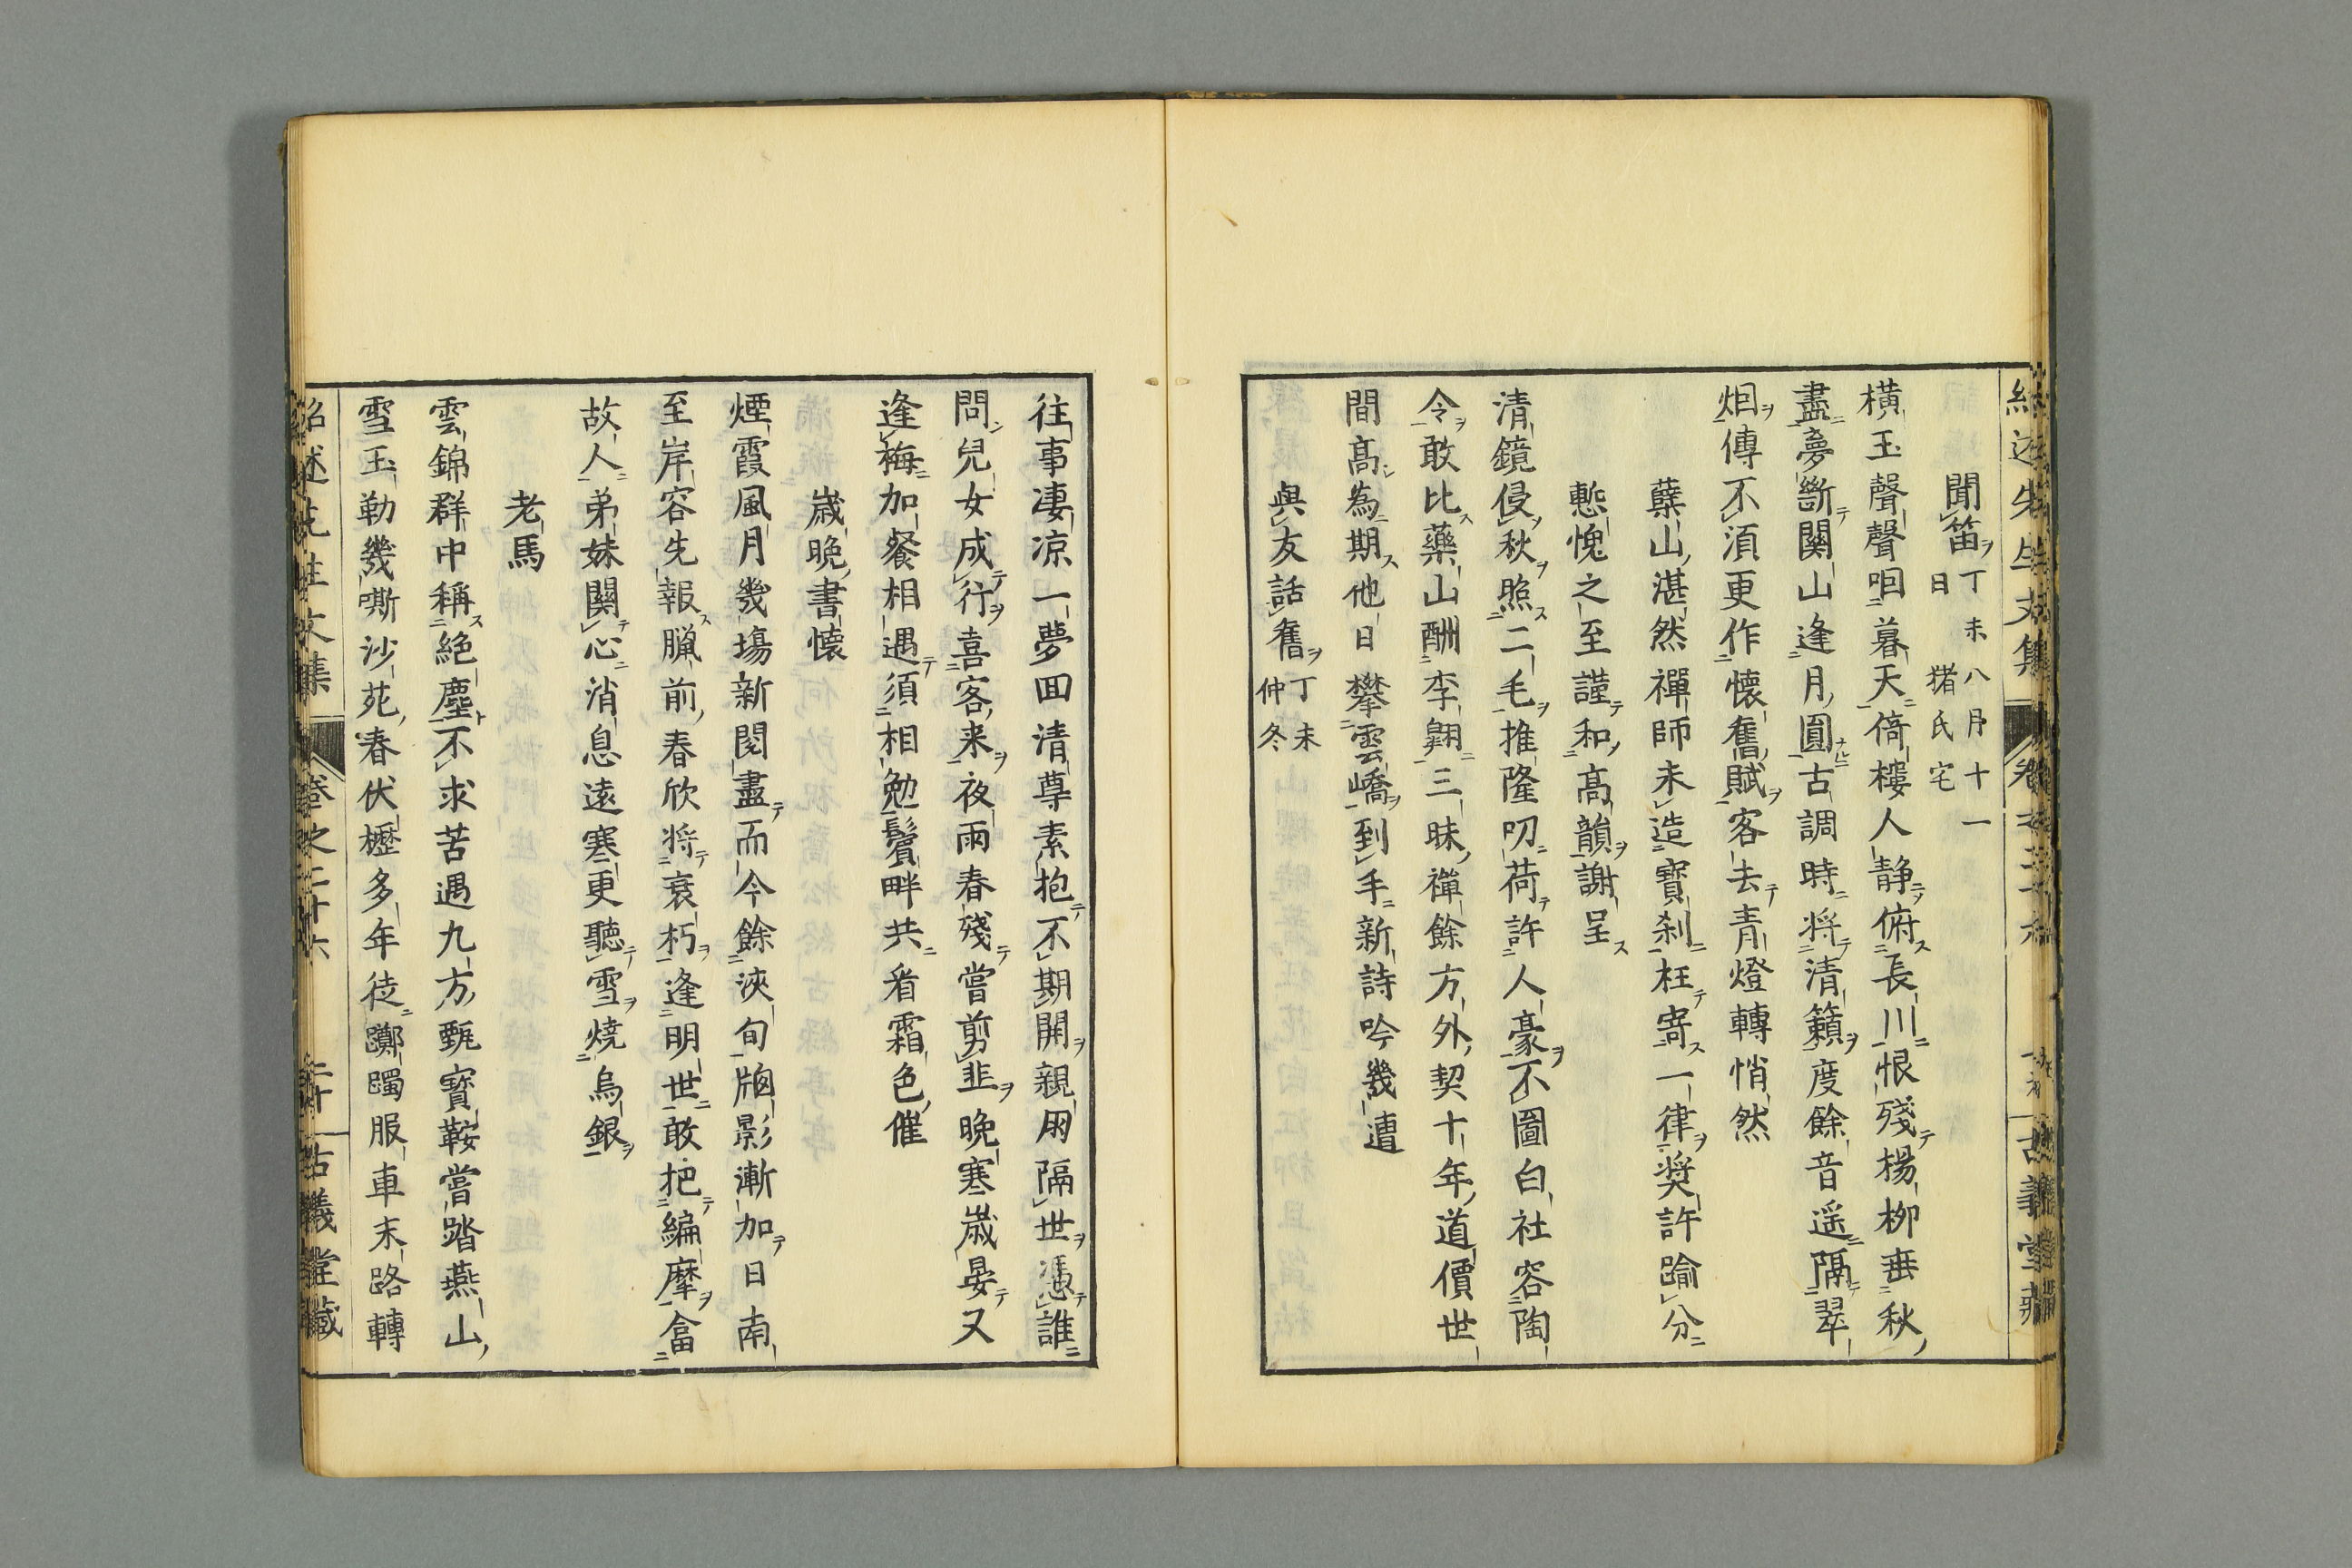 聞笛丁未八月十一
日 猪氏宅
横玉聲聲咽暮天倚樓人静俯長川恨殘楊柳垂秋
盡夢斷關山逢月圓古調時将清籟度餘音遥隔翠
烟傳不須更作懷舊賦客去青燈轉悄然
蘖山湛然禪師未造寶刹枉寄一律奨許踰分
慙愧之至謹和高韻謝呈
清鏡侵秋照二毛推隆叨荷許人豪不圖白社容陶
令敢比藥山酬李翺三昧禪餘方外契十年道價世
間高為期他日攀雲嶠到手新詩吟幾遭
與友話舊丁未
仲冬
往事凄凉一夢回清尊素抱不期開親朋隔世憑誰
問兒女成行喜客来夜雨春殘嘗剪韭晩寒歳晏又
逢梅加餐相遇須相勉鬢畔共看霜色催
歳晩書懷
煙霞風月幾塲新閲盡而今餘浹旬牕影漸加日南
至岸容先報臘前春欣将衰朽逢明世敢把編摩畣
故人弟妹關心消息遠寒更聽雪焼烏銀
老馬
雲錦群中稱絶塵不求苦遇九方甄寳鞍嘗踏燕山
雪玉勒幾嘶沙苑春伏櫪多年徒躑躅服車末路轉
紹述先生文集 卷之二十六 二十 古義堂藏